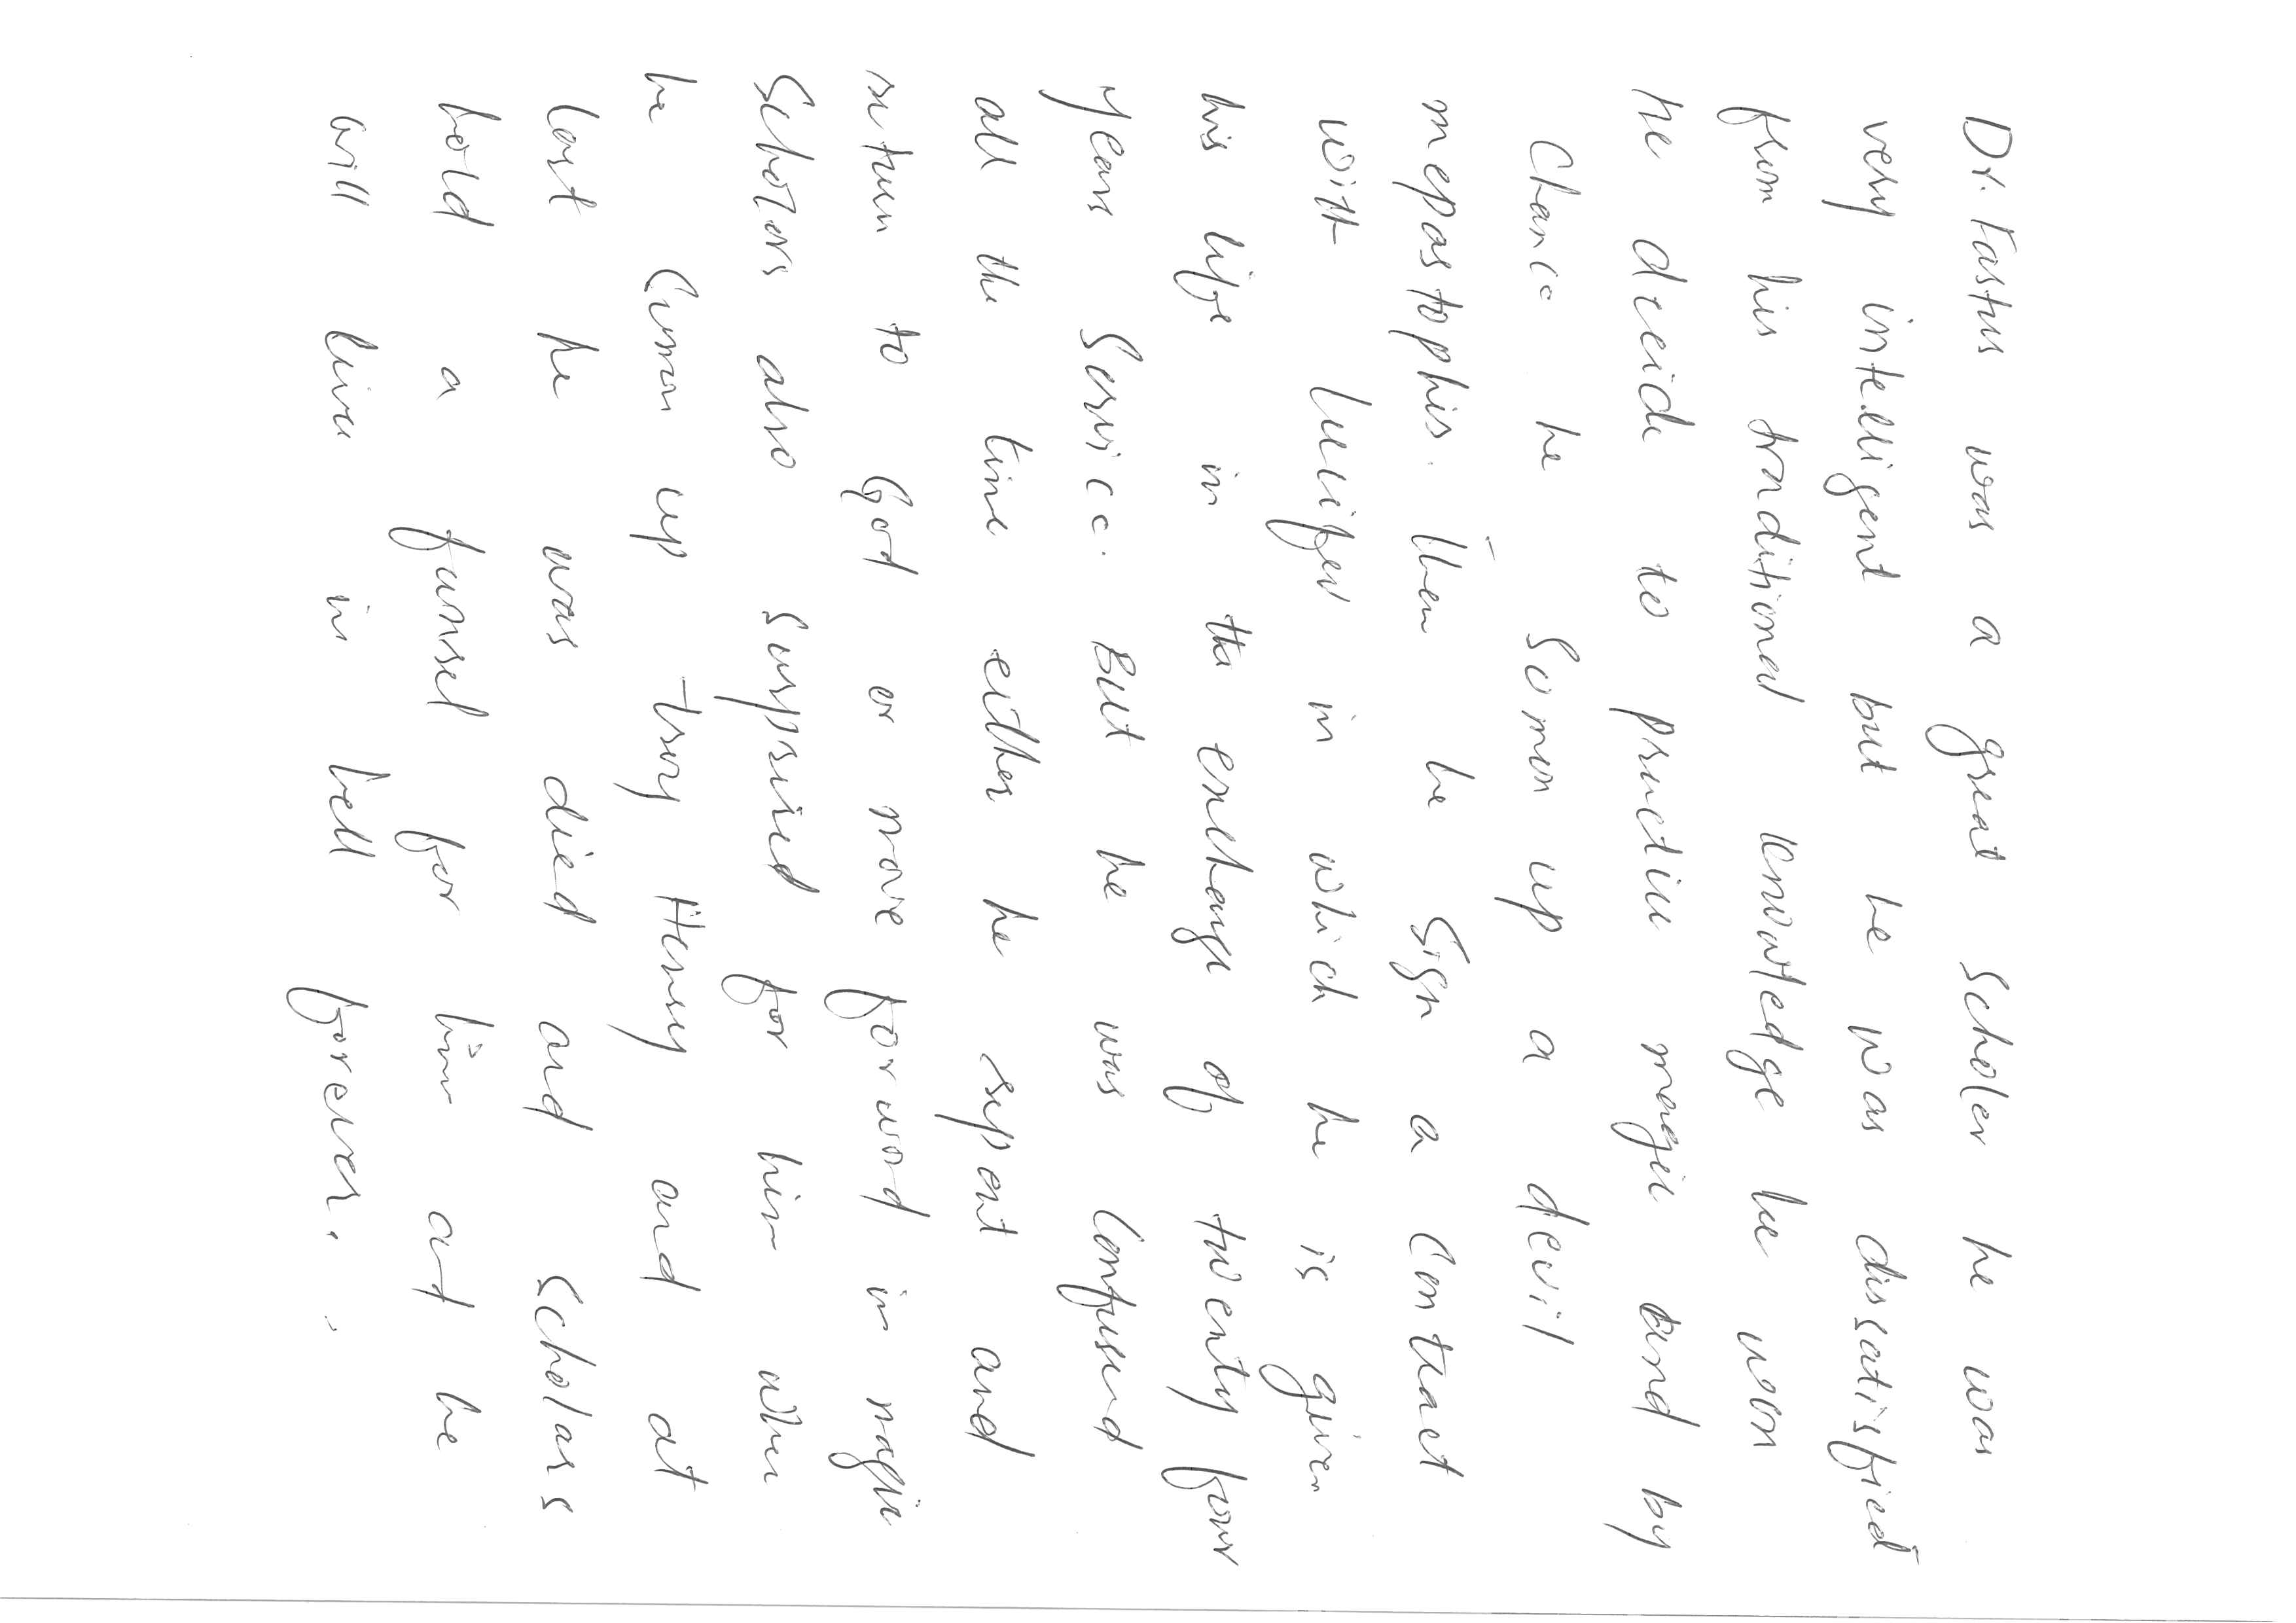 Dr. Fastus was a great Scholer he was
very intelligent but he was dissatisfied
from his traditional knowledge he won
he decide to practice magic and by
Chance he Somon up a devil
mepastophis. Then he Sign a Contract
with Lucifer in which he is given
his life in the exchange of twenty four
years Service. But he was Confused
all the time either he repent and
return to God or move forword in magic
Scholors also surprised for him when
he Summon up troy Henry and at
last he was died and scholars
hold a funrel for him and he
will live in hell forever.